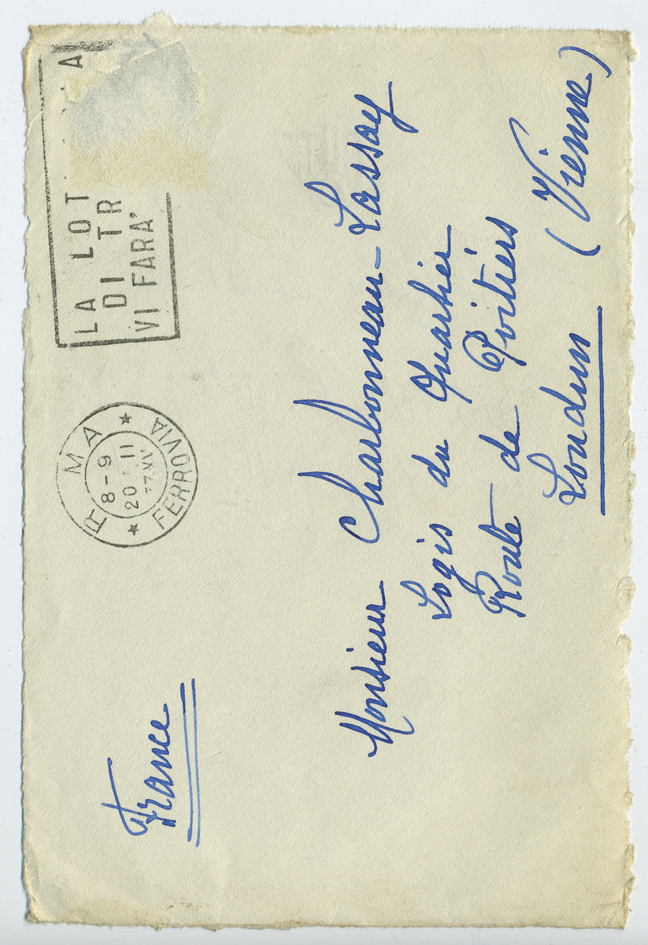 France
R MA
8-9
20 11
FERROVIA
A
LA LOT
DI TR
VI FARA'
Monsieur Charbonneau-Lassay
Logis du Quartier
Route de Poitiers
Loudun (Vienne)